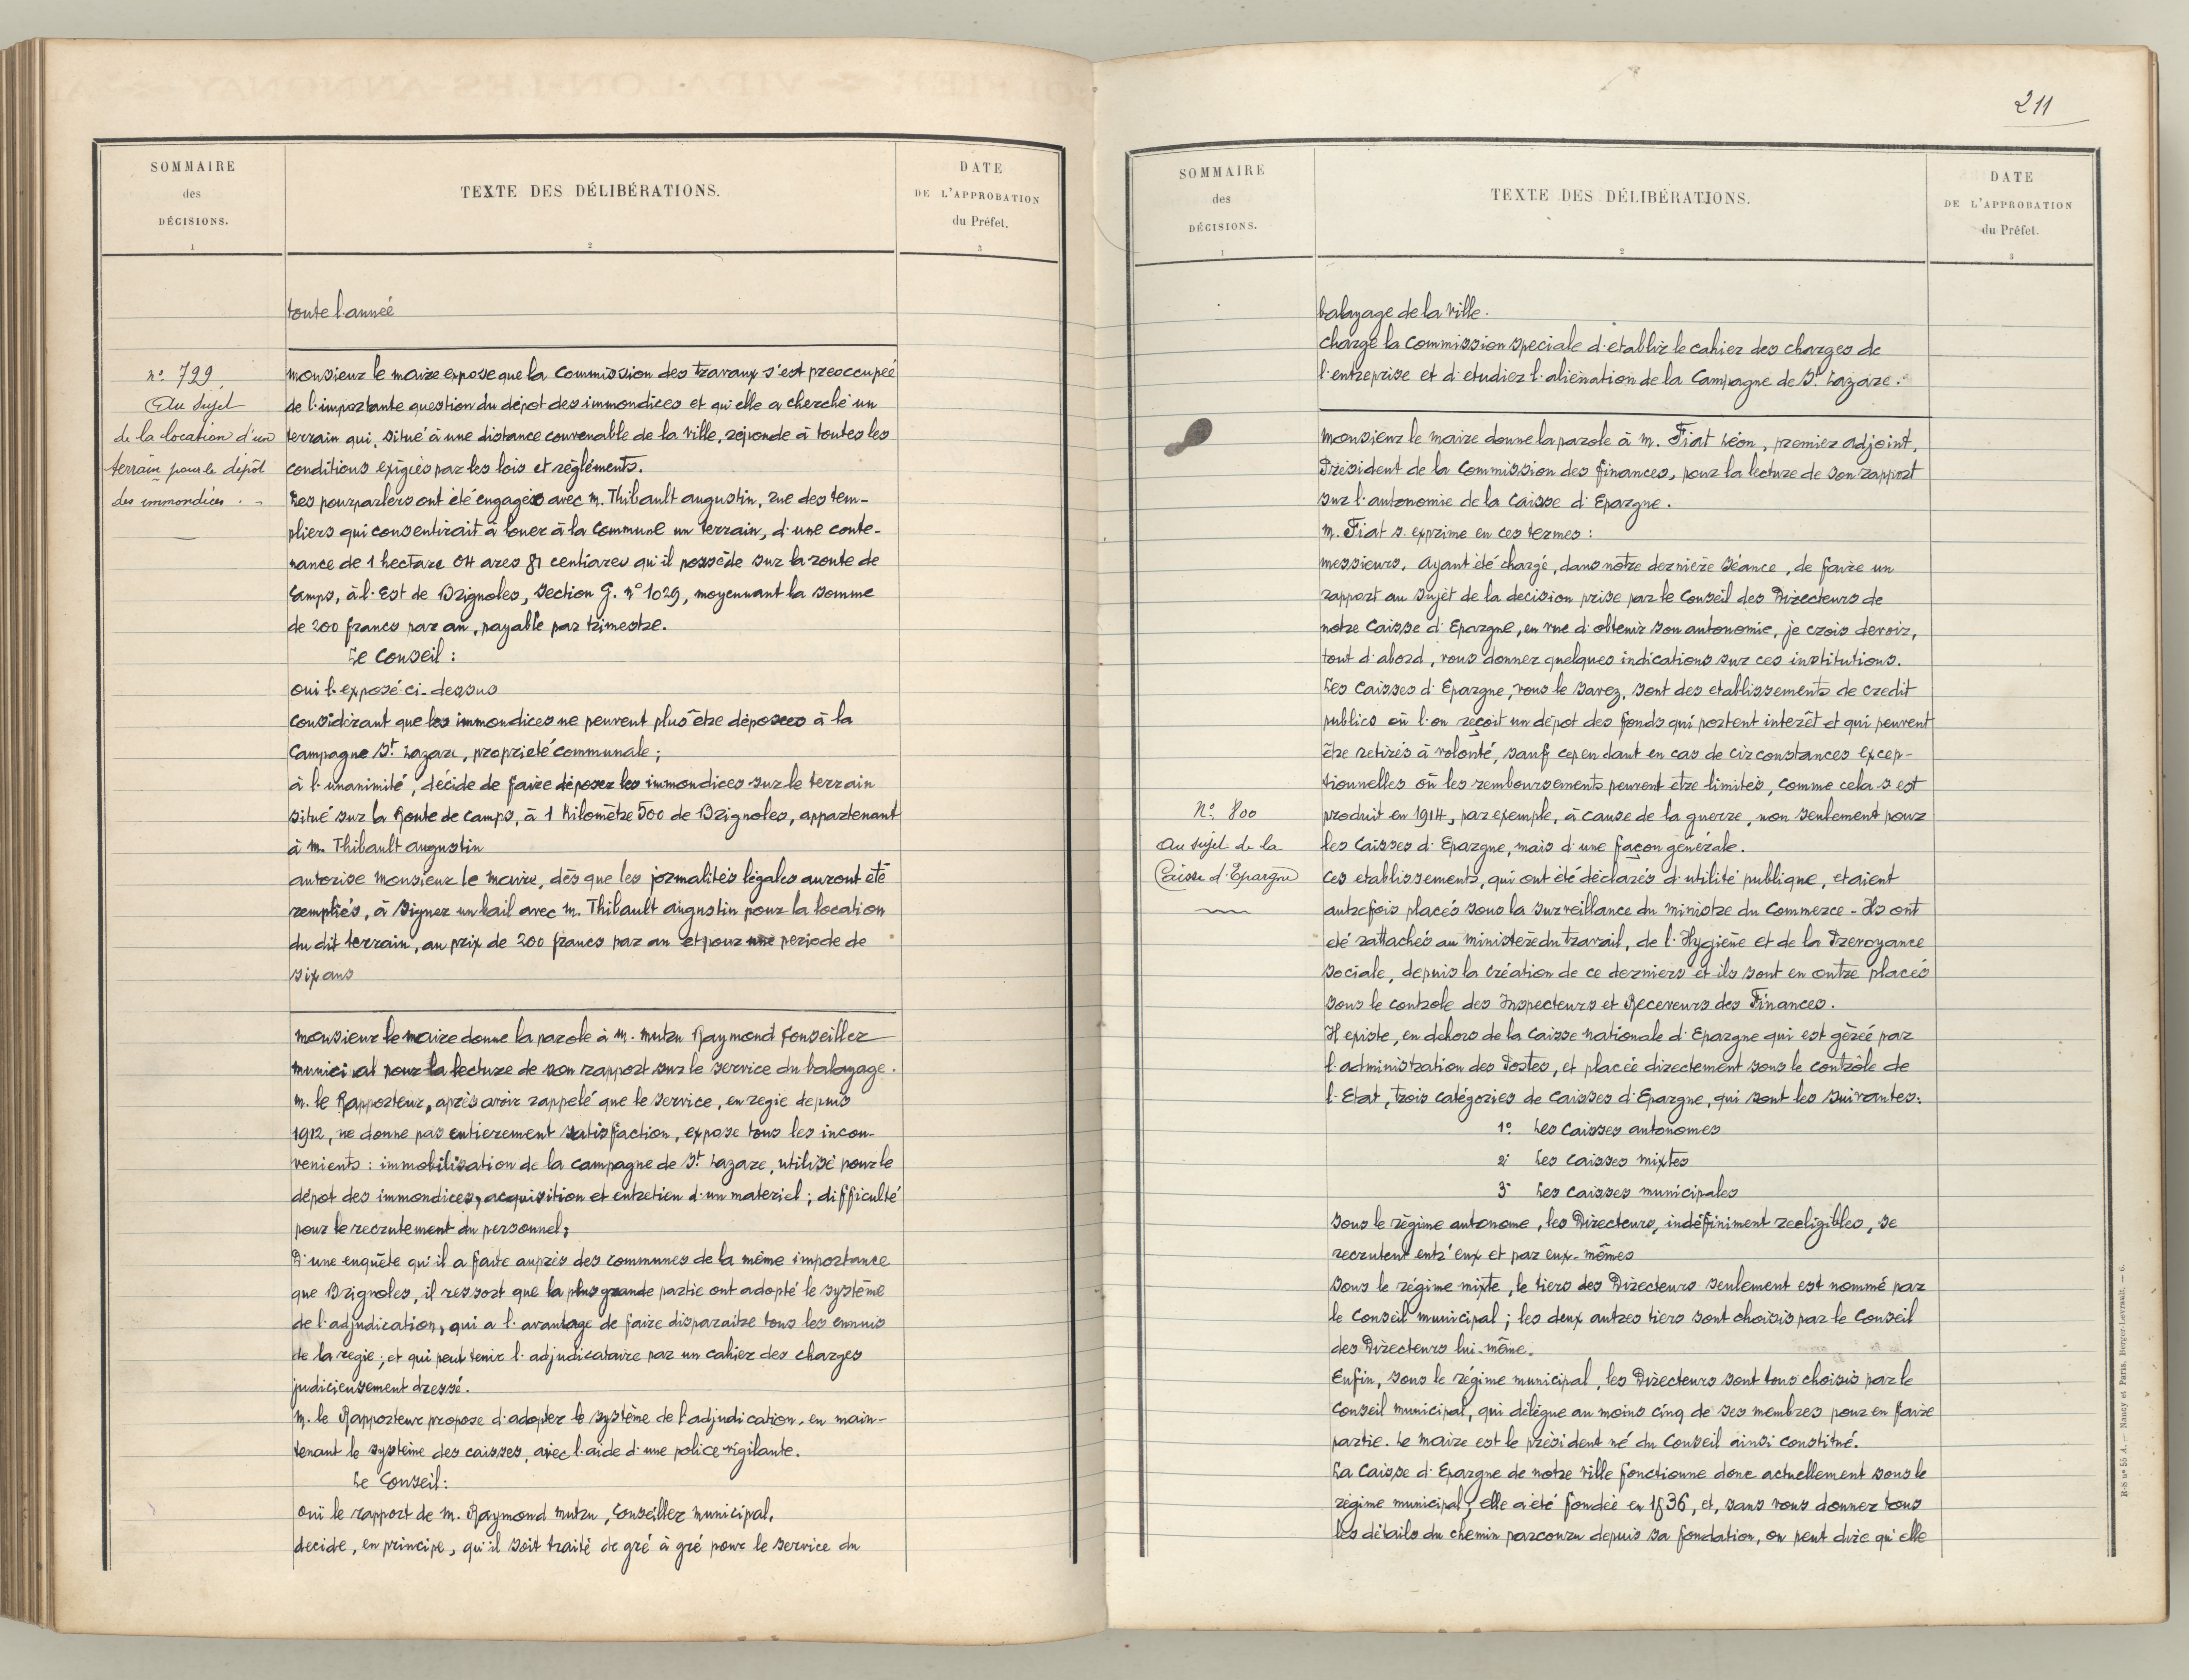 SOMMAIRE
des
DÉCISIONS.
1
TEXTE DES DÉLIBÉRATIONS.
2
DATE
DE L'APPROBATION
du Préfet.
3
toute l'année
n° 799
Au sujet
de la location d'un
terrain pour le dépôt
des immondices. -
monsieur le maire expose que la Commission des travaux s'est preoccupée
de l'importante question du dépot des immondices et qu'elle a cherché un
terrain qui, situé à une distance convenable de la ville, réponde à toutes les
conditions exigées par les lois et règléments.
Les pourparlers ont été engagés avec m. Thibault augustin, rue des tem-
pliers qui consentirait à louer à la Commune un terrain, d'une conte-
nance de 1 hectare 04 ares 81 centiares qu'il possède sur la route de
Camps, à l'Est de Brignoles, section G. n° 1029, moyennant la somme
de 200 francs par an, payable par trimestre.
Le Conseil :
oui l'exposé ci-dessus
considérant que les immondices ne peuvent plus être déposées à la
Campagne St. Lazare, propriété communale ;
à l'unanimité, décide de faire déposer les immondices sur le terrain
situé sur la Route de camps, à 1 Kilomètre 500 de Brignoles, appartenant
à m. Thibault augustin
autorise monsieur le maire, dès que les formalités légales auront été
remplies, à signer un bail avec m. Thibault augustin pour la location
du dit terrain, au prix de 200 francs par an et pour une periode de
six ans
monsieur le maire donne la parole à m. mutru Raymond Conseiller
munici al pour la lecture de son rapport sur le service du balayage.
m. le Rapporteur, après avoir rappelé que le service, en regie depuis
1912, ne donne pas entierement satisfaction, expose tous les incon-
venients : immobilisation de la campagne de St. Lazare, utilisé pour le
dépot des immondices, acquisition et entretien d'un materiel ; difficulté
pour le recrutement du personnel ;
D'une enquête qu'il a faite auprès des communes de la même importance
que Brignoles, il ressort que la plus grande partie ont adopté le système
de l'adjudication, qui a l'avantage de faire disparaitre tous les ennuis
de la regie ; et qui peut tenir l'adjudicataire par un cahier des charges
judicieusement dressé.
m. le Rapporteur propose d'adopter le système de l'adjudication, en main-
tenant le système des caisses, avec l'aide d'une police vigilante.
Le Conseil :
oui le rapport de m. Raymond mutru, Conseiller municipal,
decide, en principe, qu'il soit traité de gré à gré pour le service du
211
SOMMAIRE
des
DÉCISIONS.
1
TEXTE DES DÉLIBÉRATIONS.
2
DATE
DE L'APPROBATION
du Préfet.
3
balayage de la ville.
charge la Commission speciale d'etablir le cahier des charges de
l'entreprise et d'etudier l'alienation de la Campagne de St. Lazare.
monsieur le maire donne la parole à m. Fiat Léon, premier adjoint,
Président de la Commission des finances, pour la lecture de son rapport
sur l'autonomie de la Caisse d'Epargne.
m. Fiat s'exprime en ces termes :
messieurs, ayant été chargé, dans notre dernière séance, de faire un
rapport au sujet de la decision prise par le Conseil des Directeurs de
notre Caisse d'Epargne, en vue d'obtenir son autonomie, je crois devoir,
tout d'abord, vous donner quelques indications sur ces institutions.
Les Caisses d'Epargne, vous le savez, sont des etablissements de credit
publics où l'on reçoit un dépot des fonds qui portent interêt et qui peuvent
être retirés à volonté, sauf cependant en cas de circonstances excep-
tionnelles où les remboursements peuvent être limités, comme cela s'est
produit en 1914, par exemple, à cause de la guerre, non seulement pour
les Caisses d'Epargne, mais d'une façon générale.
N° 800
Au sujet de la
Caisse d'Epargne
Ces etablissements, qui ont été déclarés d'utilité publique, etaient
autrefois placés sous la surveillance du ministre du Commerce. Ils ont
eté rattachés au ministère du travail, de l'Hygiène et de la Prevoyance
sociale, depuis la création de ce derniers et ils sont en outre placés
sous le controle des Inspecteurs et Receveurs des Finances.
Il existe, en dehors de la Caisse nationale d'Epargne qui est gèréé par
l'administration des Postes, et placée directement sous le contrôle de
l'Etat, trois catégories de caisses d'Epargne, qui sont les suivantes :
1° Les Caisses autonomes
2° Les Caisses mixtes
3° Les Caisses municipales
Sous le régime autonome, les Directeurs, indéfiniment reeligibles, se
recrutent entr'eux et par eux-mêmes
Sous le régime mixte, le tiers des Directeurs seulement est nommé par
le Conseil municipal ; les deux autres tiers sont choisis par le Conseil
des Directeurs lui-même.
Enfin, sous le régime municipal, les Directeurs sont tous choisis par le
Conseil municipal, qui délègue au moins cinq de ses membres pour en faire
partie. Le maire est le président né du Conseil ainsi constitué.
La Caisse d'Epargne de notre ville fonctionne donc actuellement sous le
régime municipal ; elle a été fondée en 1836, et, sans vous donner tous
les détails du chemin parcouru depuis sa fondation, on peut dire qu'elle
R-S n° 55 d. — Nancy et Paris, Berger-Levrault. — 6.